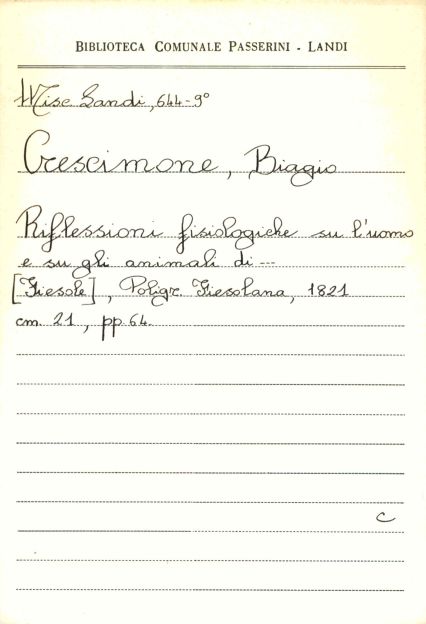 BIBLIOTECA COMUNALE PASSERINI - LANDI
Misc Landi, 644-9°
Crescimone, Biagio
Riflessioni fisiologiche su l'uomo
e su gli animali di ---
[Fiesole], Poligr. Fiesolana, 1821
cm. 21, pp 64.
C